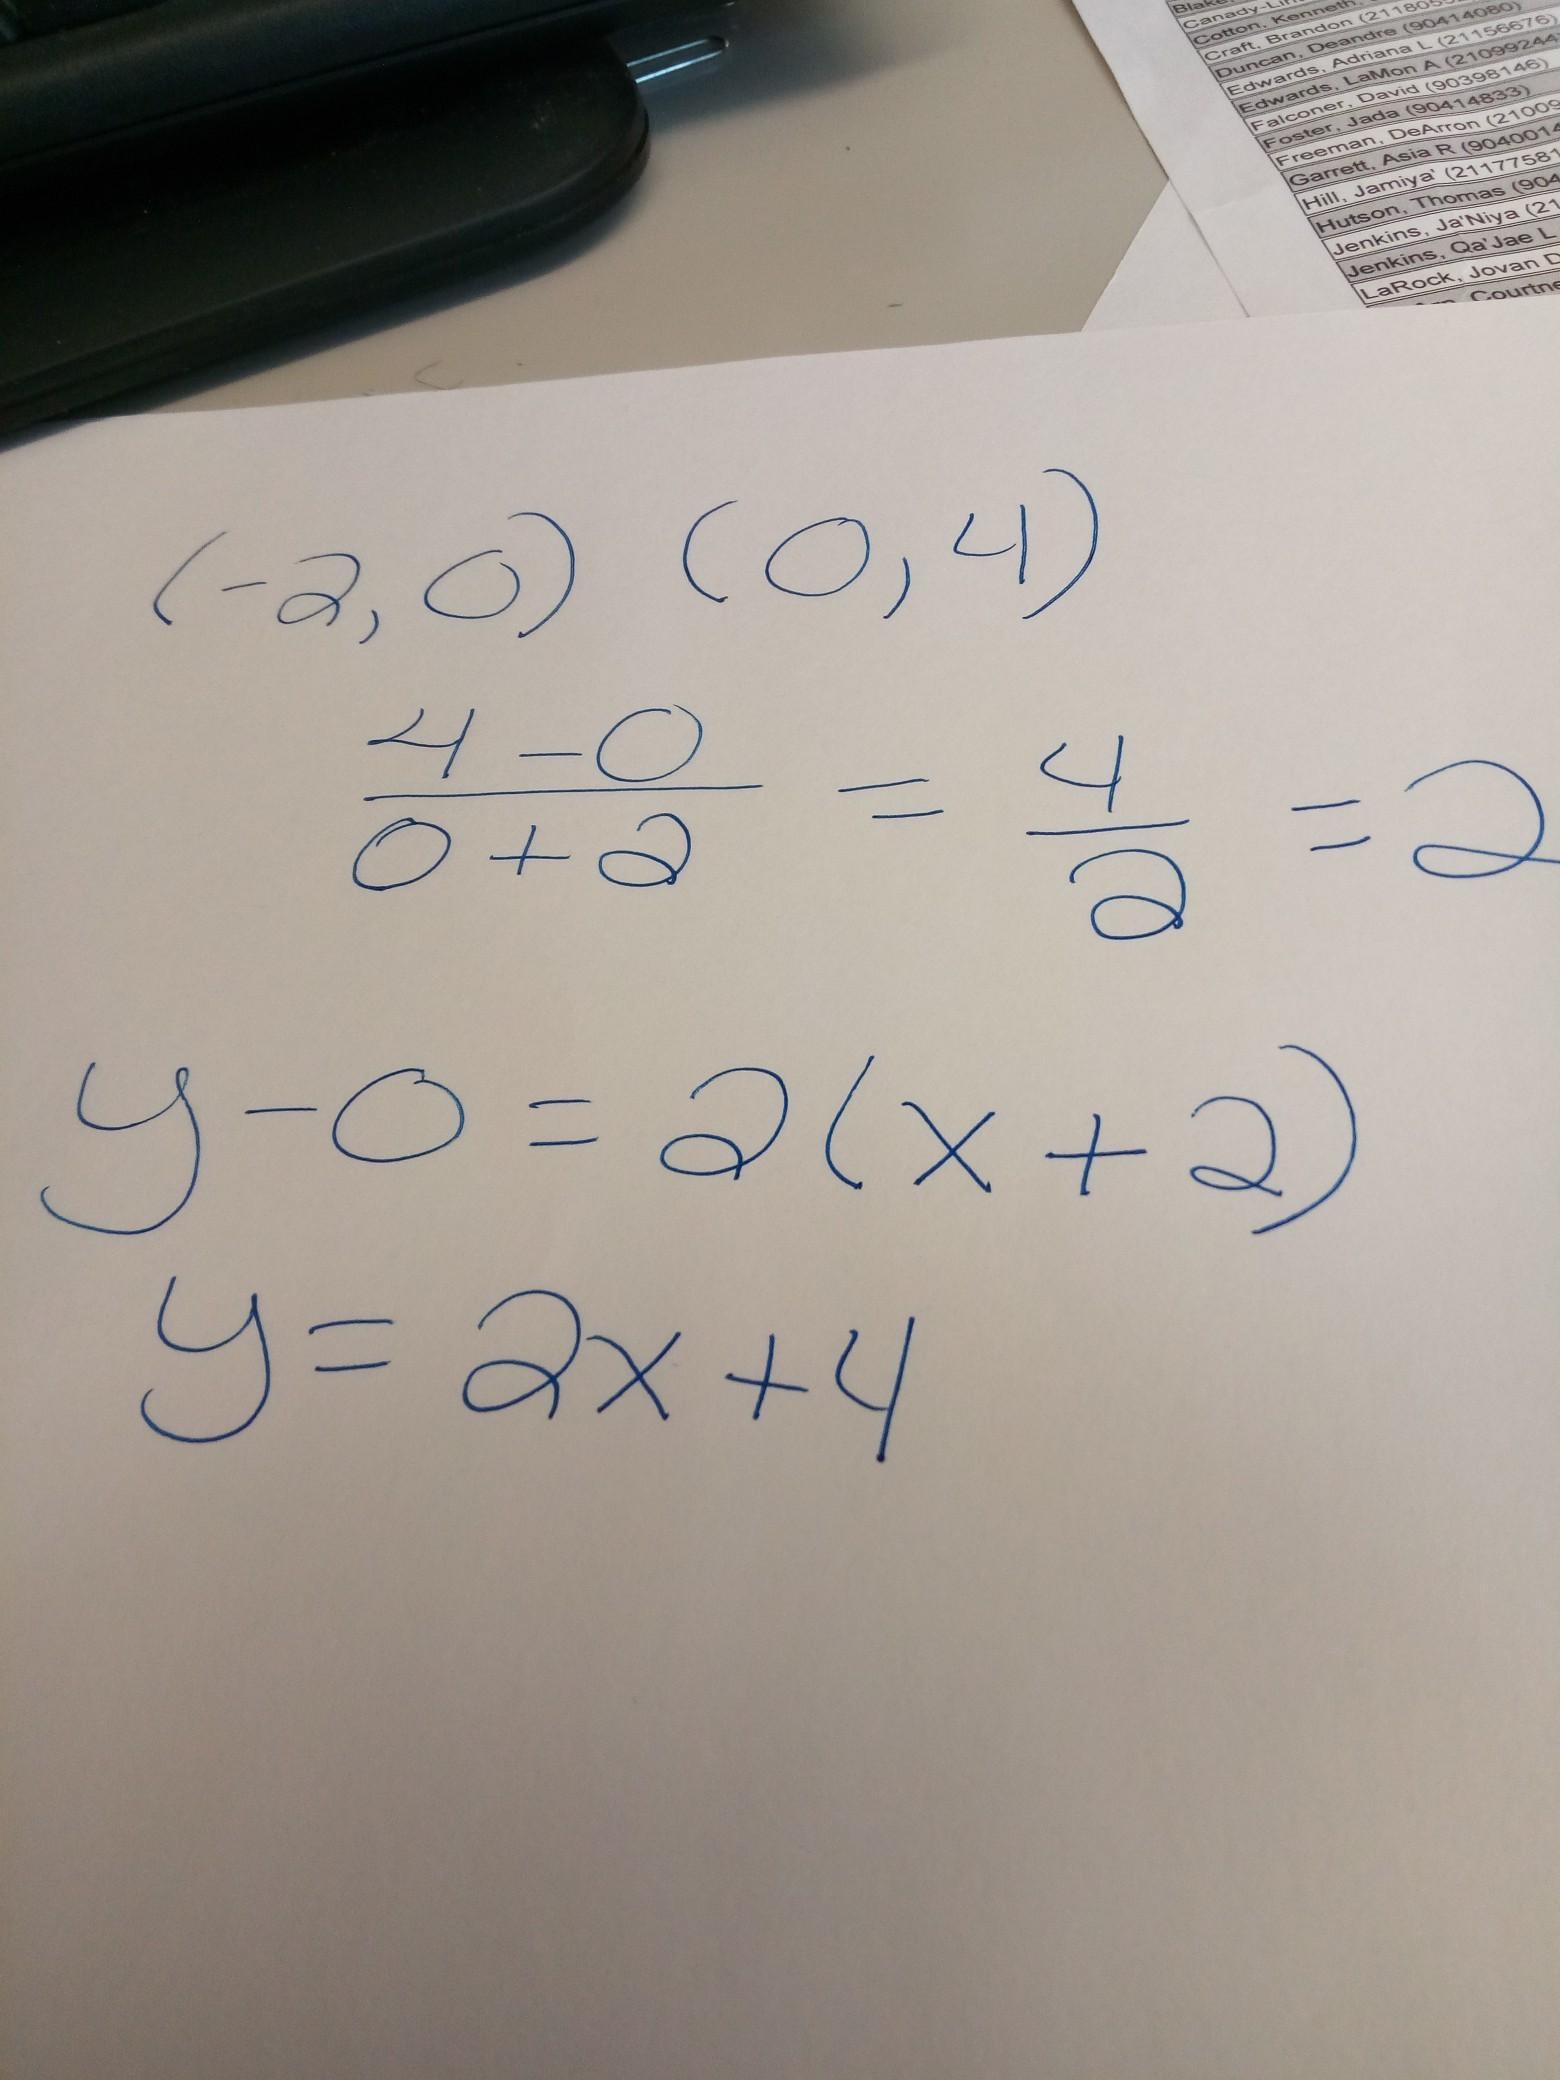 Cotton, Kenneth
Craft, Brandon (2118055
Duncan, Deandre (90414080)
Edwards, Adriana L (21156676)
Edwards, LaMon A (21099244
Falconer, David (90398146)
Foster, Jada (90414833)
Freeman, DeArron (21009
Garrett, Asia R (9040014
Hill, Jamiya' (21177581
Hutson, Thomas (904
Jenkins, Ja'Niya (21
Jenkins, Qa'Jae L
LaRock, Jovan D
Courtne
(-2, 0) (0, 4)
4 - 0 / 0 + 2 = 4 / 2 = 2
y - 0 = 2(x + 2)
y = 2x + 4